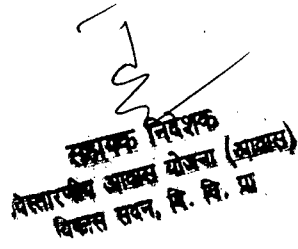 सहायक निदेशक
विस्तारणीय आवास योजना (आवास)
विकास सदन, बि. वि. प्रा